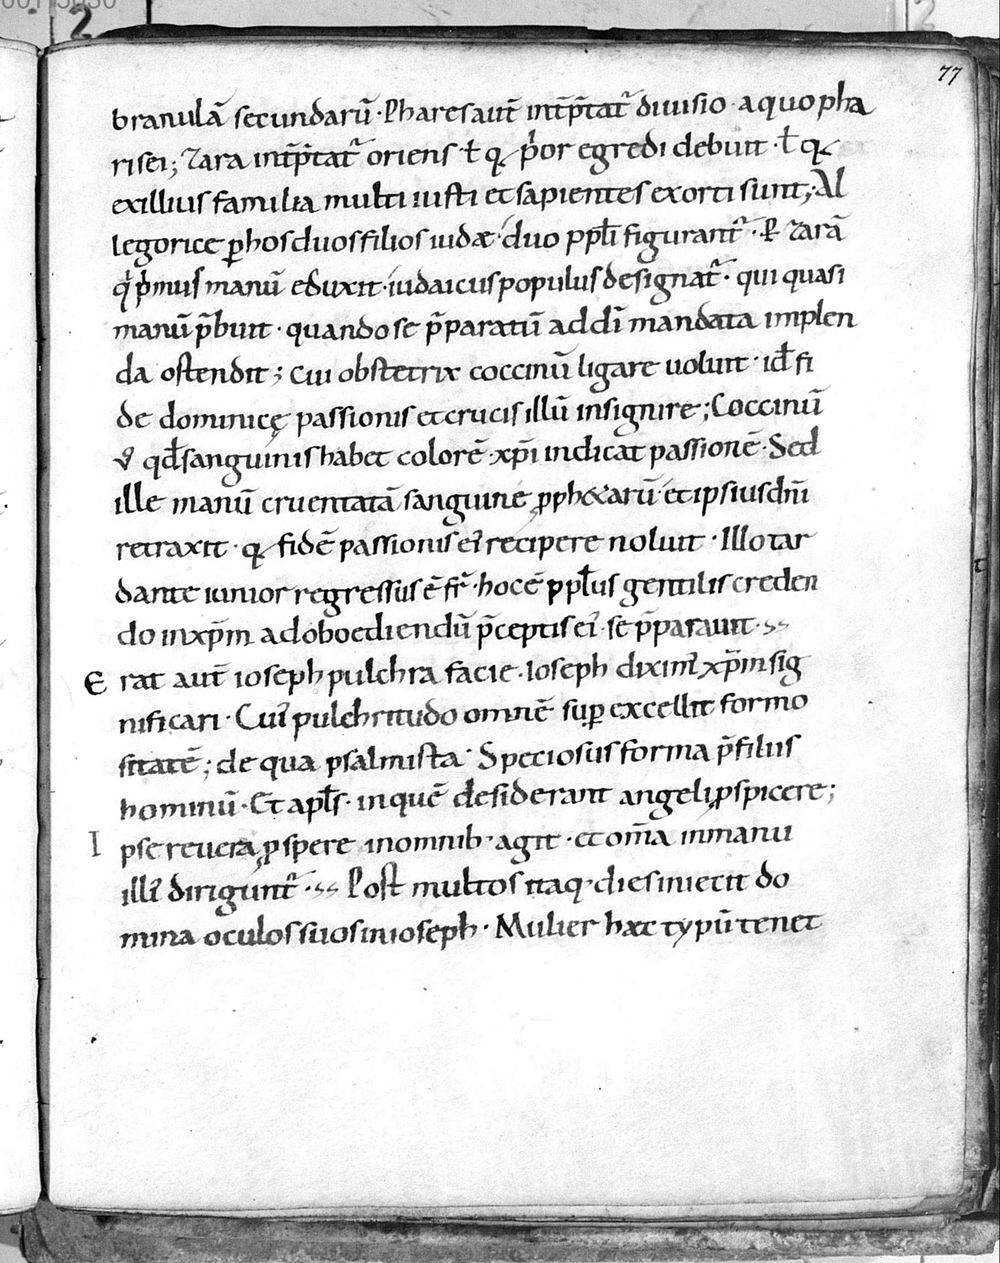 77
branulā secundarū · Phares aut̄ int̄p̄tat᷑ diuisio · a quo pha
risei; Zara int̄p̄tat᷑ oriens · ł q; p̍or egredi debuit · ł q;
ex illius familia multi iusti et sapientes exorti sunt; Al
legorice ꝑ hos duos filios iudæ · duo ppłi figurant᷑ · P̲ Zarā
q̍ p̍mus manū eduxit · iudaicus populus designat᷑ · qui quasi
manū p̄buit · quando se p̄paratū ad dī mandata implen
da ostendit; Cui obstetrix coccinū ligare uoluit · id ÷ fi
de dominicę passionis et crucis illū insignire; Coccinū
v̊ qđ sanguinis habet colorē · xp̄i indicat passionē · Sed
ille manū cruentatā sanguine ꝓph&arū · et ipsius dn̄i
retraxit · q; fidē passionis ei᷒ recipere noluit · Illo tar
dante iunior regressus ē fr̄ · hoc ē ppłus gentilis creden
do in xp̄m ad oboediendū p̄ceptis ei᷒ se p̄parauit ·
Erat aut̄ ioseph pulchra facie · Ioseph dixim᷒ xp̄m sig
nificari · Cui᷒ pulchritudo omnē suꝑexcellit formo
sitatē; de qua psalmista · Speciosus forma p̄ filiis
hominū · Et apłs · in quē desiderant angeli ꝓspicere;
Ipse reuera ꝓspere in omnib᷒ agit · et om̄a in manu
illi᷒ dirigunt᷑ · Post multos itaq; dies iniecit do
mina oculos suos in ioseph · Mulier hæc typū tenet